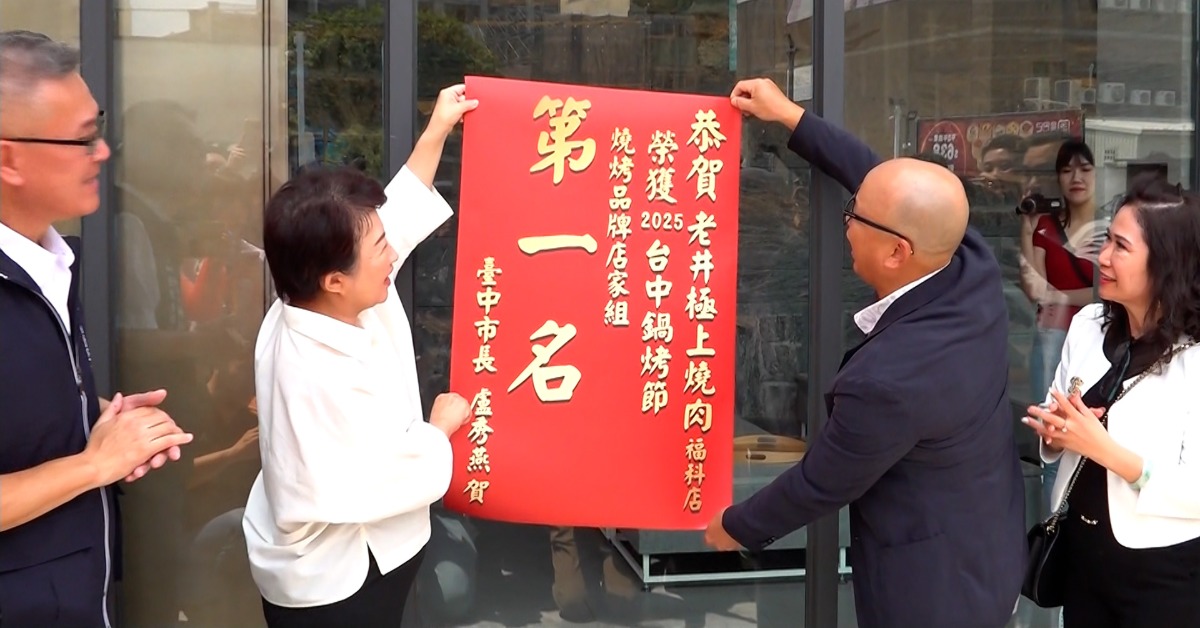 恭賀 老井極上燒肉 福科店
榮獲 2025 台中鍋烤節
燒烤品牌店家組
第一名
臺中市長 盧秀燕 賀